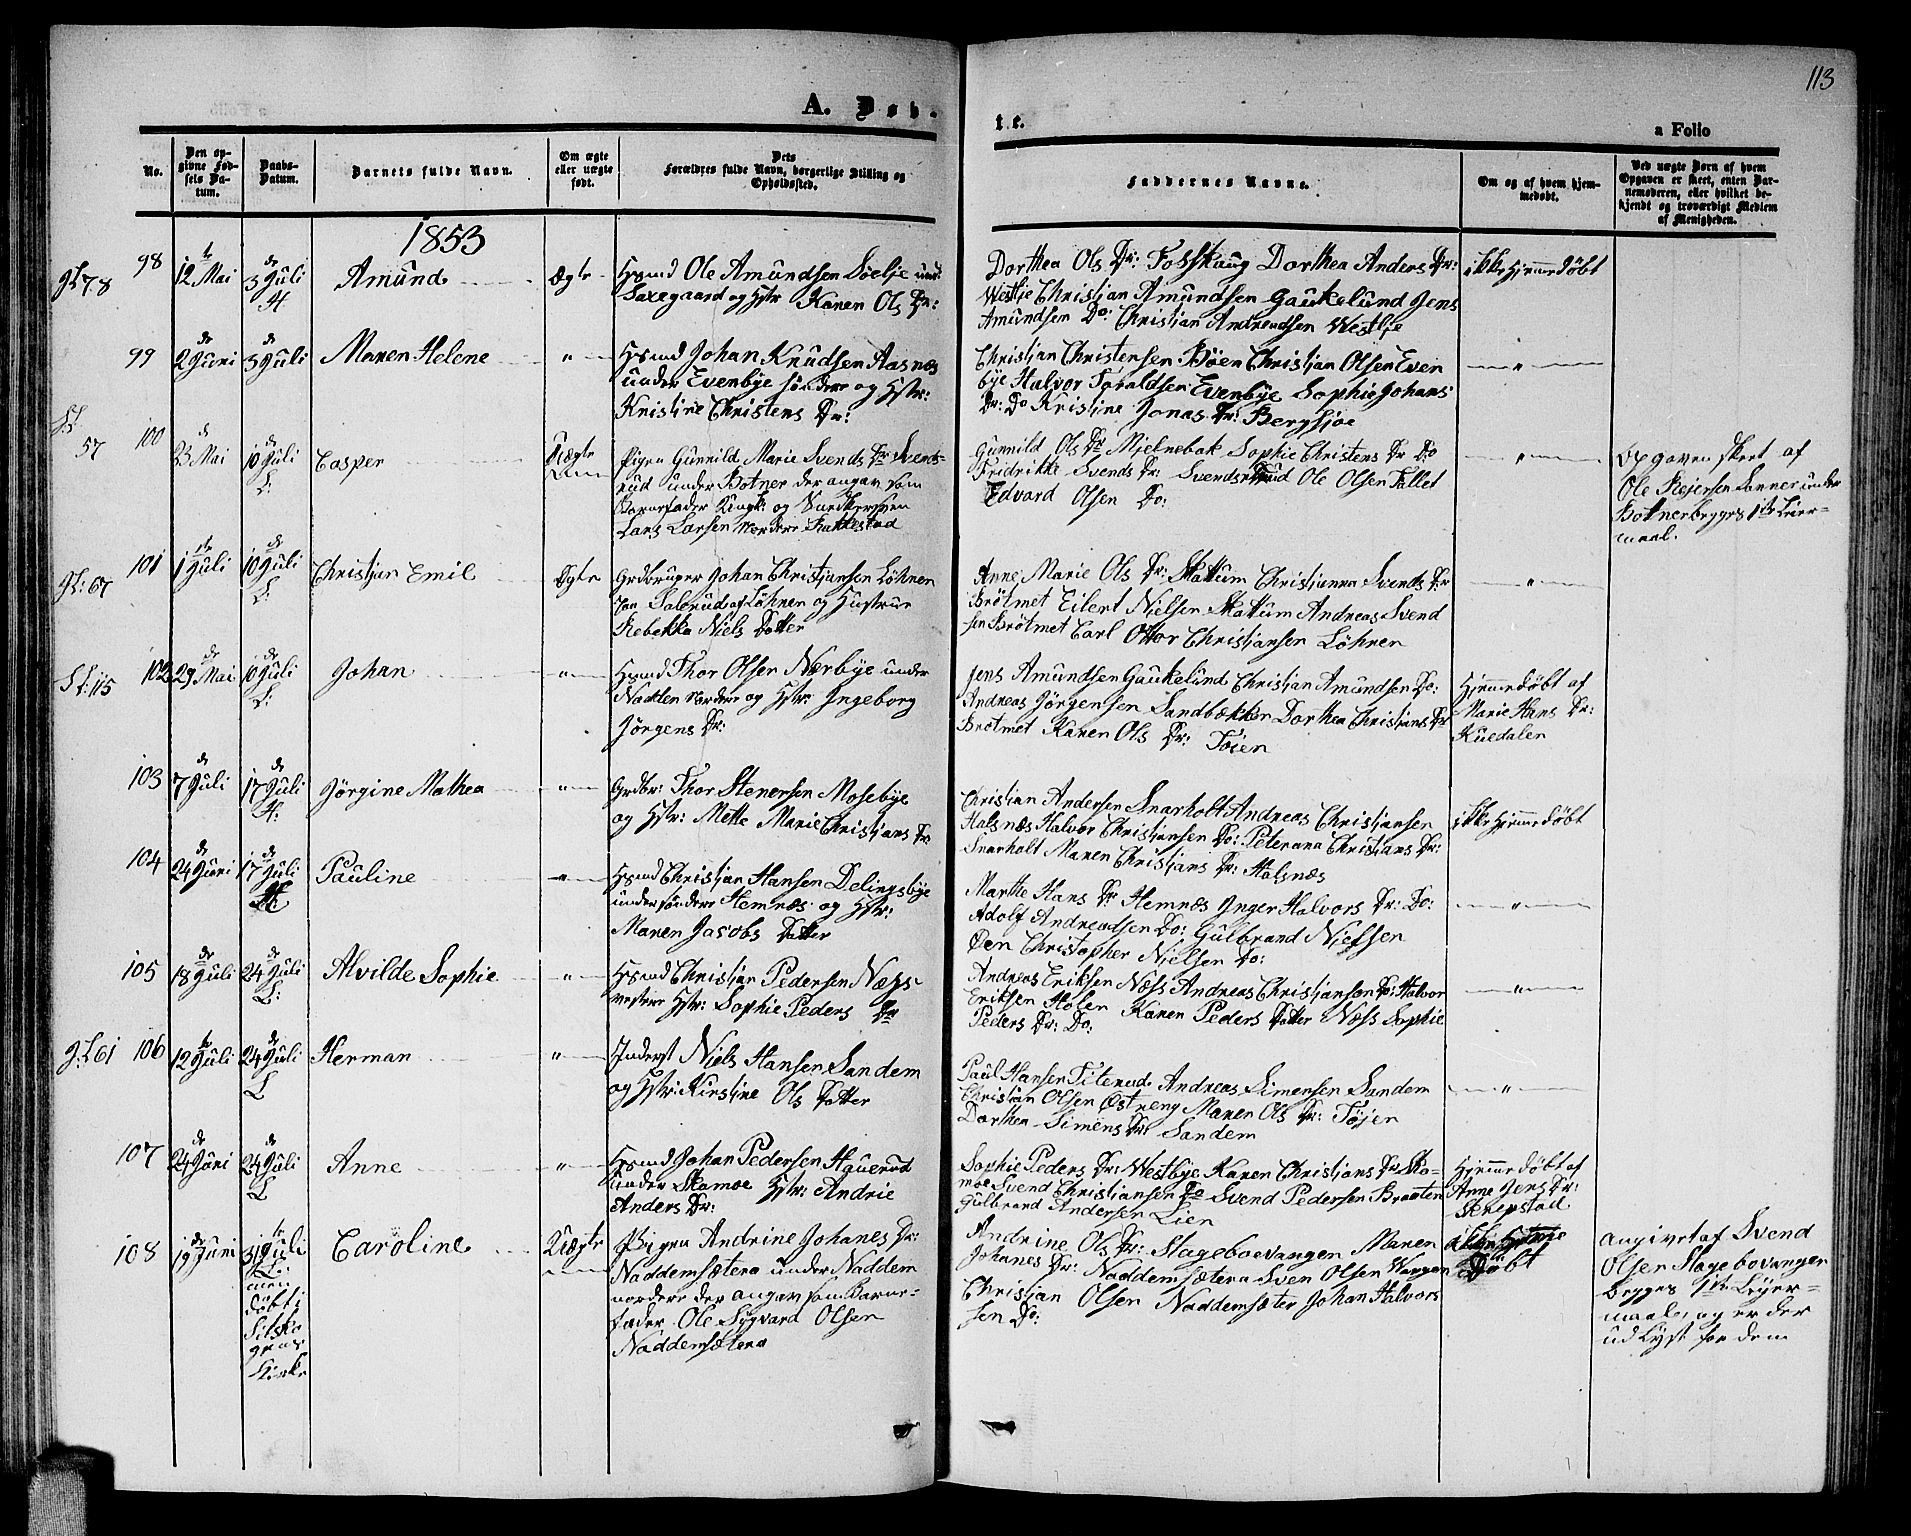 113
A. Døb-
te.
a Folio
No.
Den op-
givne Fød-
sels Da-
tum.
Daabs-
Datum.
Barnets fulde Navn.
Om ægte
eller uægte
født.
Dets
Forældres fulde Navn, borgerlige Stilling og
Opholdssted.
Faddernes Navne.
Om og af hvem hjem-
medøbt.
Ved uægte Børn af hvem
Opgaven er skeet, enten Bar-
nemoderen, eller hvilket be-
kjendt og troværdigt Medlem
af Menigheden.
1853
78
98
12 Mai
3 Juli
H.
Amund
Ægte
Hsmd Ole Amundsen Sielje und:
Saxegaard og Hstr Karen Ols Dr:
Dorthea Ols Dr: Fosskaug Dorthea Anders Dr:
Westlje Christjan Amundsen Gaukelund Jens
Amundsen Do: Christjan Andreadsen Westlje
ikke Hjemmedøbt
99
2 Juni
3 Juli
Maren Helene
"
Hsmd Johan Knudsen Aasnes
under Evenbye søndre og Hstr:
Kristine Christens Dr:
Christjan Christensen Böen Christjan Olsen Even
bye Halvor Toraldsen Evenbye Sophie Johans
Dr: Do Kristine Jonas Dr: Bergsjøe
"
57
100
23 Mai
10 Juli
L:
Casper
Uægte
Pigen Gunnild Marie Svends Dr Svends-
rud under Botner der angav som
Barnefader Ungk: og Snedkersven
Lars Larsen nordere Bakkestad
Gunnild Ols Dr Mjelnebak Sophie Christens Dr Do
Fridrikke Svends Dr: Svendsrud Ole Olsen Fallet
Edvard Olsen Do:
"
Opgaven skeet af
Ole Rejersen Sanner under
Botner begges 1ste Leier-
maal.
67
101
1 Juli
10 Juli
L:
Christjan Emil
Ægte
Grdbruger Johan Christjansen Löhner
Jon Salerud af Löhner og Hustrue
Rebekka Niels Datter
Anne Marie Ols Dr: Skattum Christjanna Svends Dr
Brötmet Eilert Nielsen Skattum Andreas Svend
sen Brötmet Carl Ottor Christjansen Löhren
"
115
102
29 Mai
10 Juli
L:
Johan
"
Hsmd Thor Olsen Nærbye under
Nadden Nordere og Hstr: Ingeborg
Jörgens Dr:
Jens Amundsen Gaukelund Christjan Amundsen Do:
Andreas Jörgensen Sandbækken Dorthea Christjans Dr
Brötmet Karen Ols Dr: Töien
Hjemmedøbt af
Marie Hans Dr:
Kuedalen
103
7 Juli
17 Juli
H:
Jörgine Mathea
"
Grdbr: Thor Stenersen Mosebye
og Hstr: Mette Marie Christjans Dr
Christian Andersen Snarholt Andreas Christjansen
Halsnæs Halvor Christjansen Do: Peterana Christjans Dr:
Snarholt Maren Christjans Dr: Halsnæs
ikke Hjemmedøbt
104
24 Juni
17 Juli
Pauline
"
Hsmd Christjan Hansen Delingsbye
under søndere Hemnæs og Hstr:
Maren Jacobs Datter
Marthe Hans Dr Hemnæs Inger Halvors Dr: Do:
Adolf Andreadsen Do: Gülbrand Nielsen
Öen Christopher Nielsen Do:
"
105
18 Juli
24 Juli
L:
Alvilde Sophie
"
Hsmd Christjan Pedersen Næss
vestere Hstr: Sophie Peders Dr
Andreas Eriksen Næss Andreas Christjansen Do: Halvor
Eriksen Holen Karen Peders Datter Næss Sophie
Peders Dr: Do:
"
61
106
12 Juli
24 Juli
L
Herman
"
Inderst Niels Hansen Sandem
og Hstr: Kirstine Ols Datter
Paul Hansen Titerud Andreas Simensen Sandem
Christian Olsen Østreng Maren Ols Dr: Töjen
Dorthea Simens Dr: Sandem
"
107
24 Juni
24 Juli
L
Anne
"
Hsmd Johan Pedersen Haverud
under Skamoe Hstr: Andrie
Anders Dr:
Sophie Peders Dr: Westbye Karen Christjans Dr Ska-
moe Svend Christjansen Do Svend Pedersen Braaten
Gülbrand Andersen Lien
Hjemmedøbt af
Anne Jens Dr:
108
19 Juni
31 Juli
L:
men
døbt i
Kirke
Caroline
Uægte
Pigen Andrine Johanes Dr:
Naddemsætera under Naddem
nordere der angav som Barne-
fader Ole Sygvard Olsen
Naddemsætera
Andrine Ols Dr: Slageboevangen Maren
Johanes Dr: Naddemsætera Sven Olsen Wangen
Christjan Olsen Naddemsæter Johan Halvors
sen Do:
ikke Hjemme
Döbt
Angivet af Svend
Olsen Slagebovangen
begges 1ste Leyer-
maale, og er der
udlyst for dem